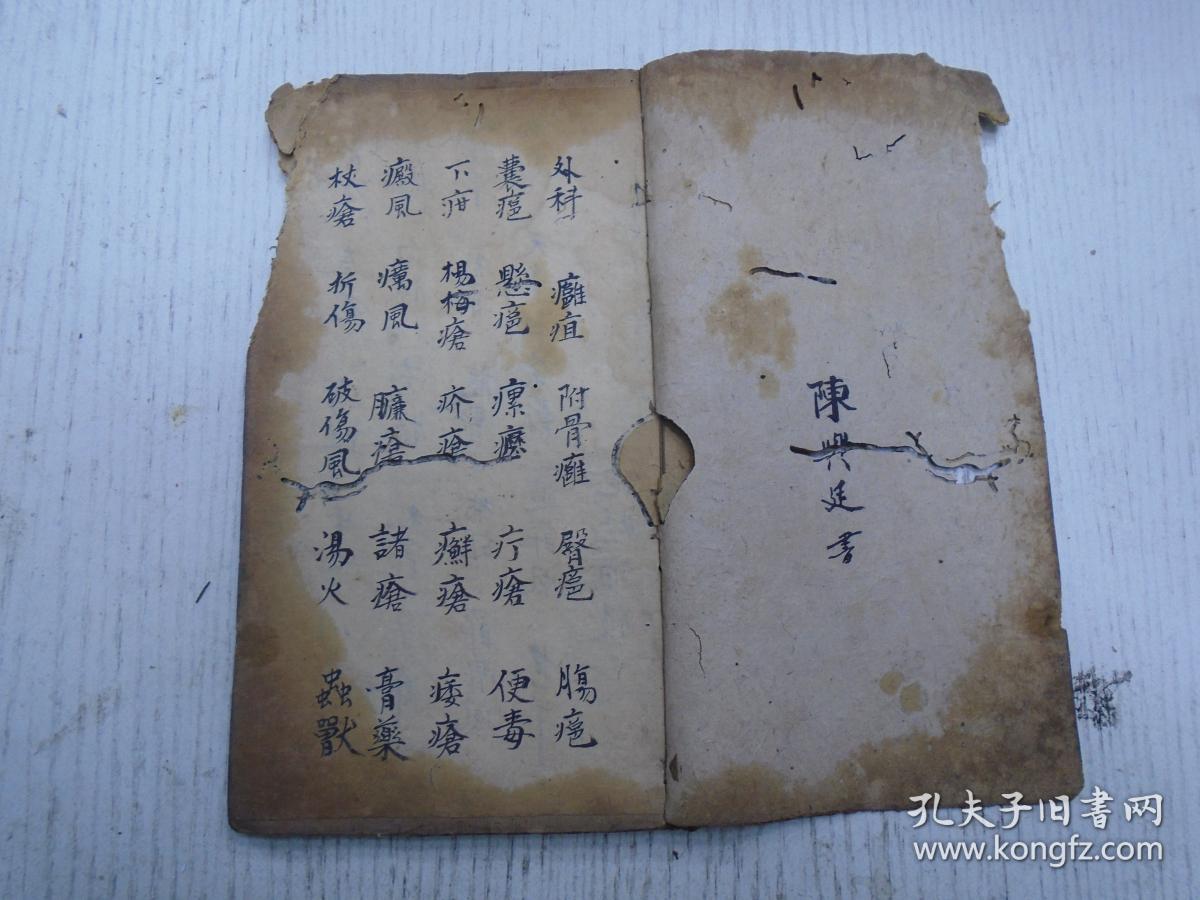 陳興廷書
外科 癰疽 附骨癰 臀癰 腸癰
囊癰 懸癰 瘰癧 疔瘡 便毒
下疳 楊梅瘡 疥瘡 癬瘡 痿瘡
癜風 癘風 臁瘡 諸瘡 膏藥
杖瘡 折傷 破傷風 湯火 蟲獸
孔夫子旧书网
www.kongfz.com